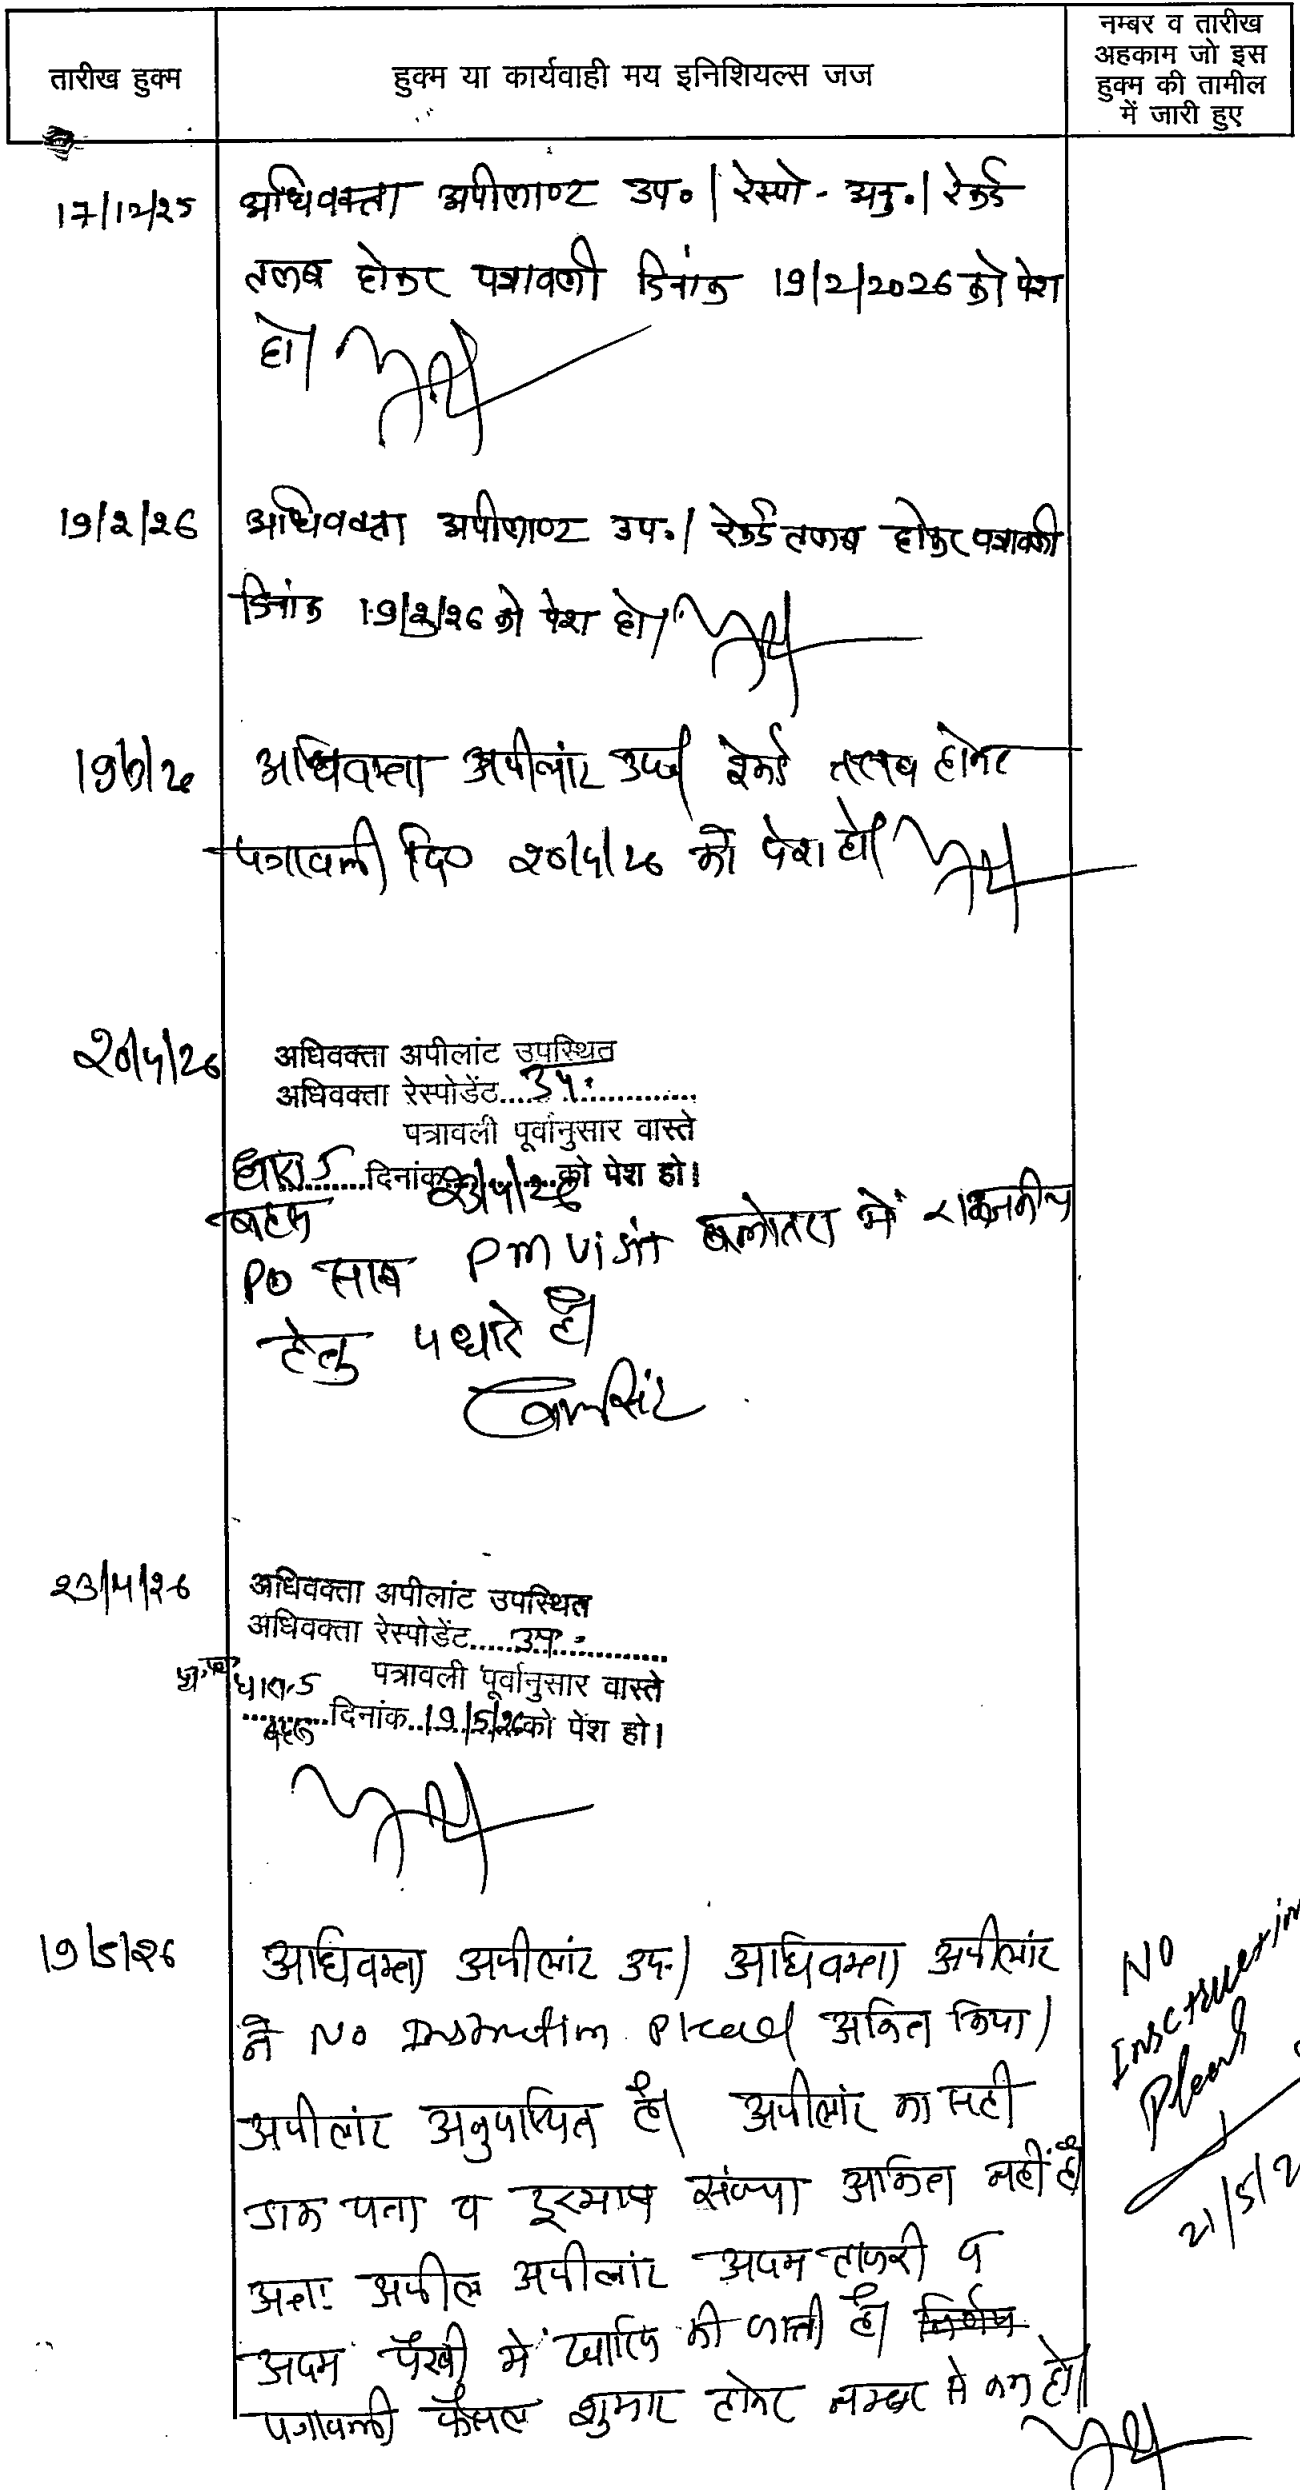 तारीख हुक्म
हुक्म या कार्यवाही मय इनिशियल्स जज
नम्बर व तारीख
अहकाम जो इस
हुक्म की तामील
में जारी हुए
17/12/25
अधिवक्ता अपीलाण्ट उप०। रेस्पो - अनु.। रेकर्ड
तलब होकर पत्रावली दिनांक 19/2/2026 को पेश
हो।
19/2/26
अधिवक्ता अपीलाण्ट उप.। रेकर्ड तलब होकर पत्रावली
दिनांक 19/3/26 को पेश हो।
19/3/26
अधिवक्ता अपीलांट उप। रेकर्ड तलब होकर
पत्रावली दि० 20/4/26 को पेश हो।
20/4/26
अधिवक्ता अपीलांट उपस्थित
अधिवक्ता रेस्पोडेंट....उप.............
पत्रावली पूर्वानुसार वास्ते
धारा 5 ..........दिनांक 23/4/26 को पेश हो।
बहस
PO साब PM visit बालोतरा में
हेतु पधारे है।
23/4/26
अधिवक्ता अपीलांट उपस्थित
अधिवक्ता रेस्पोडेंट......उप.............
पत्रावली पूर्वानुसार वास्ते
धारा-5 ..........दिनांक..19/5/26को पेश हो।
बहस
19/5/26
अधिवक्ता अपीलांट उप.। अधिवक्ता अपीलांट
ने No Instruction Plead अंकित किया।
अपीलांट अनुपस्थित है। अपीलांट का सही
डाक पता व दूरभाष संख्या अंकित नहीं है।
अतः अपील अपीलांट अदम हाजरी व
अदम पैरवी में खारिज की जाती है। निर्णय
पत्रावली फैसल शुमार होकर नम्बर से कम हो।
No
Insctruction
Plead
21/5/2